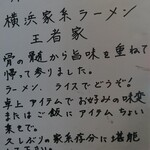 横浜家系ラーメン
王者家
骨の髄から旨味を重ねて
帰って参りました。
ラーメン、ライスでどうぞ!
卓上アイテムでお好みの味変
またはご飯にアイテムちょい
乗せで。
久しぶりの家系存分に堪能